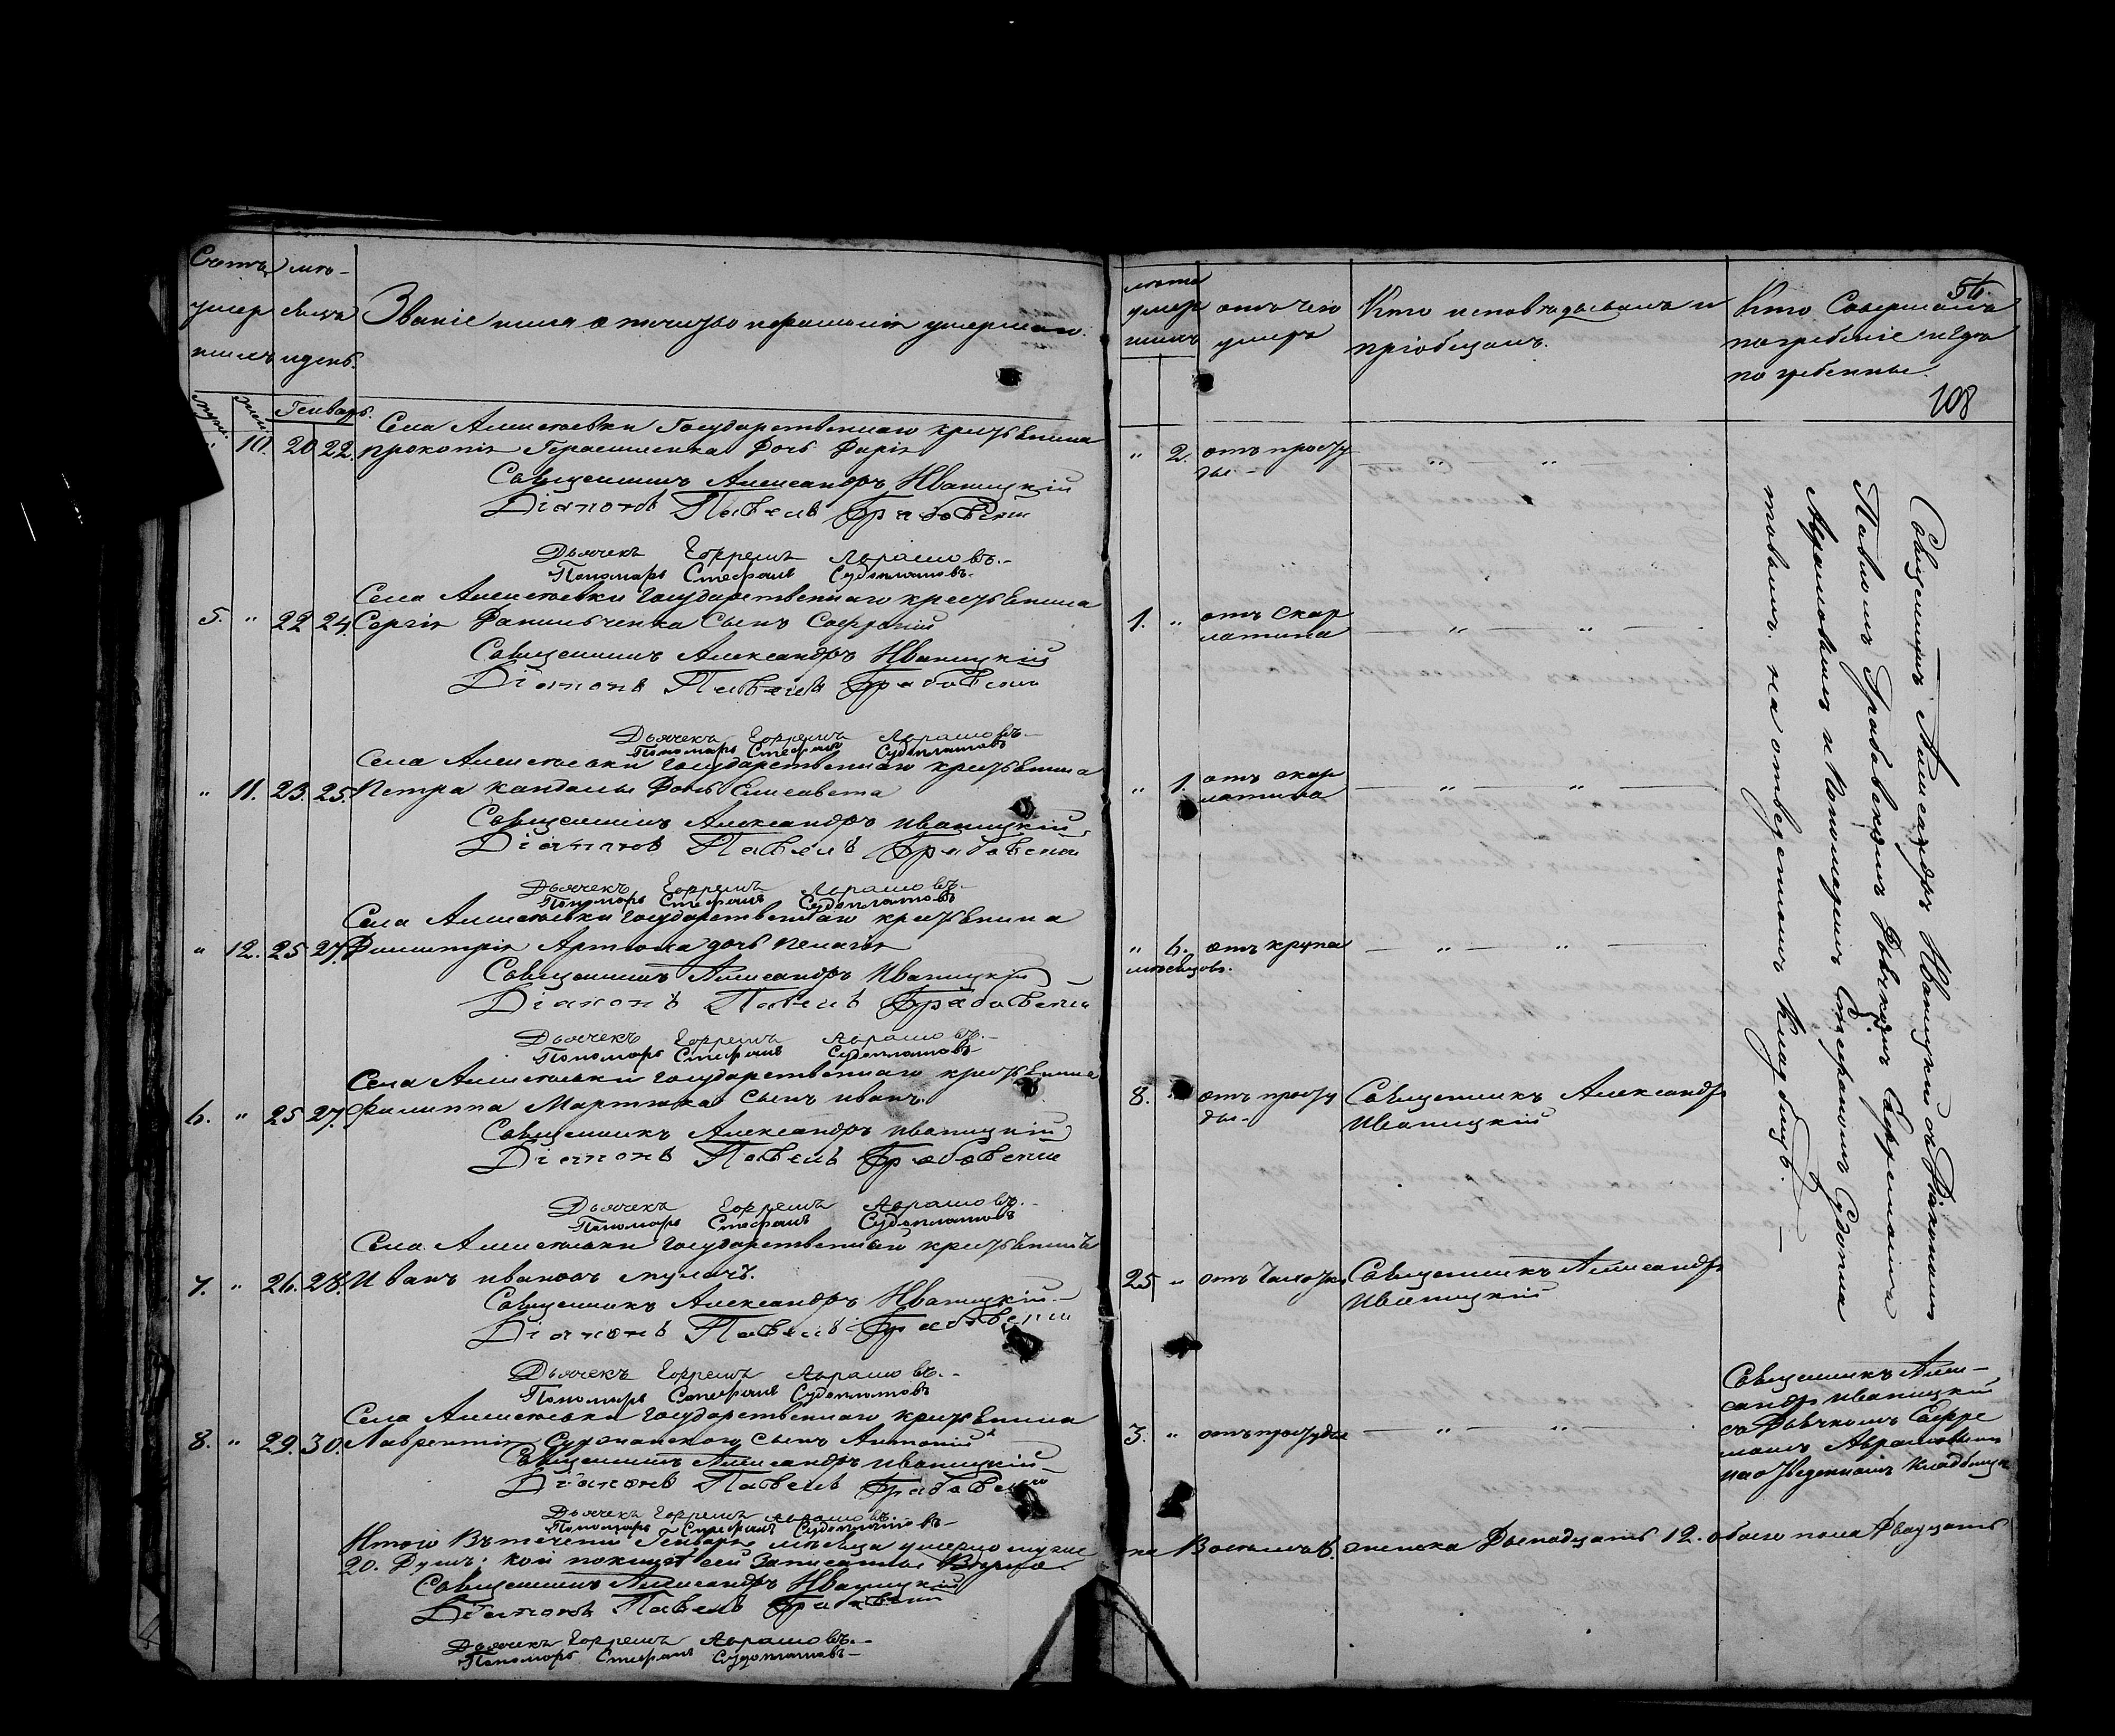 Счетъ
умер
шихъ
мѣ-
сяцъ
и день.
Званіе имя отчество и фамилія умершаго.
муж.
жен.
Генварь.
Села Алексѣевки Государственнаго крестьянина
10. 20 22. Прокопія Герасименка дочь Дарія
Священникъ Александръ Иваницкій
Діаконъ Павелъ Грабовскій
Дьячекъ Ефремъ Аврамовъ.-
Пономарь Стефанъ Судоплатовъ.
Села Алексѣевки Государственнаго крестьянина
5. " 22 24. Сергія Данильченка сынъ Софроній
Священникъ Александръ Иваницкій
Діаконъ Павелъ Грабовскій
Дьячекъ Ефремъ Аврамовъ.-
Пономарь Стефанъ Судоплатовъ
Села Алексѣевки Государственнаго крестьянина
" 11. 23. 25. Петра Кандалы дочь Елисавета
Священникъ Александръ Иваницкій
Діаконъ Павелъ Грабовскій
Дьячекъ Ефремъ Аврамовъ.-
Пономарь Стефанъ Судоплатовъ
Села Алексѣевки Государственнаго крестьянина
" 12. 25 27. Димитрія Артюма дочь Пелагія
Священникъ Александръ Иваницкій
Діаконъ Павелъ Грабовскій
Дьячекъ Ефремъ Аврамовъ.-
Пономарь Стефанъ Судоплатовъ
Села Алексѣевки Государственнаго крестьянина
6. " 25 27. Филиппа Мартюка сынъ Иванъ.
Священникъ Александръ Иваницкій
Діаконъ Павелъ Грабовскій
Дьячекъ Ефремъ Аврамовъ.-
Пономарь Стефанъ Судоплатовъ
Села Алексѣевки Государственный крестьянинъ
7. " 26. 28. Иванъ Ивановъ
Священникъ Александръ Иваницкій.-
Діаконъ Павелъ Грабовскій
Дьячекъ Ефремъ Аврамовъ.-
Пономарь Стефанъ Судоплатовъ
Села Алексѣевки Государственнаго крестьянина
8. " 29. 30. Лаврентія сынъ Антоній
Священникъ Александръ Иваницкій
Діаконъ Павелъ Грабовскій
Дьячекъ Ефремъ Аврамовъ.
Пономарь Стефанъ Судоплатовъ
Итого въ теченіи Генваря мѣсяца умерло мужес
20. Душъ:
Священникъ Александръ Иваницкій
Діаконъ Павелъ Грабовскій
Дьячекъ Ефремъ Аврамовъ.-
Пономарь Стефанъ Судоплатовъ-
56.
лѣта
умер
шихъ
отъ чего
умеръ
Кто исповѣдывалъ и
пріобщалъ.
Кто Совершалъ
погребеніе и гдѣ
погребенны.
108
" 2. отъ просту
ды.-
1. " отъ скар
латина
" 1. отъ скар
латина
" 6. отъ крупа
мѣсяцовъ.
8. отъ просту
ды-
Священникъ Александръ
Иваницкій
25 " отъ чахотки Священникъ Александръ
Иваницкій
3. " отъ простуды
Священникъ Александръ Иваницкій съ Діакономъ
Павломъ Грабовскимъ Дьячкомъ Ефремомъ
Аврамовымъ и Пономаремъ Стефаномъ Судопла
товымъ. на отведенномъ кладбищѣ.-
Священникъ Алек-
сандръ Иваницкій
съ Дьячкомъ Ефре
момъ Аврамовымъ
на отведенномъ кладбищѣ
ка Восемь 8. женска Двенадцать 12. обоего пола Двадцать